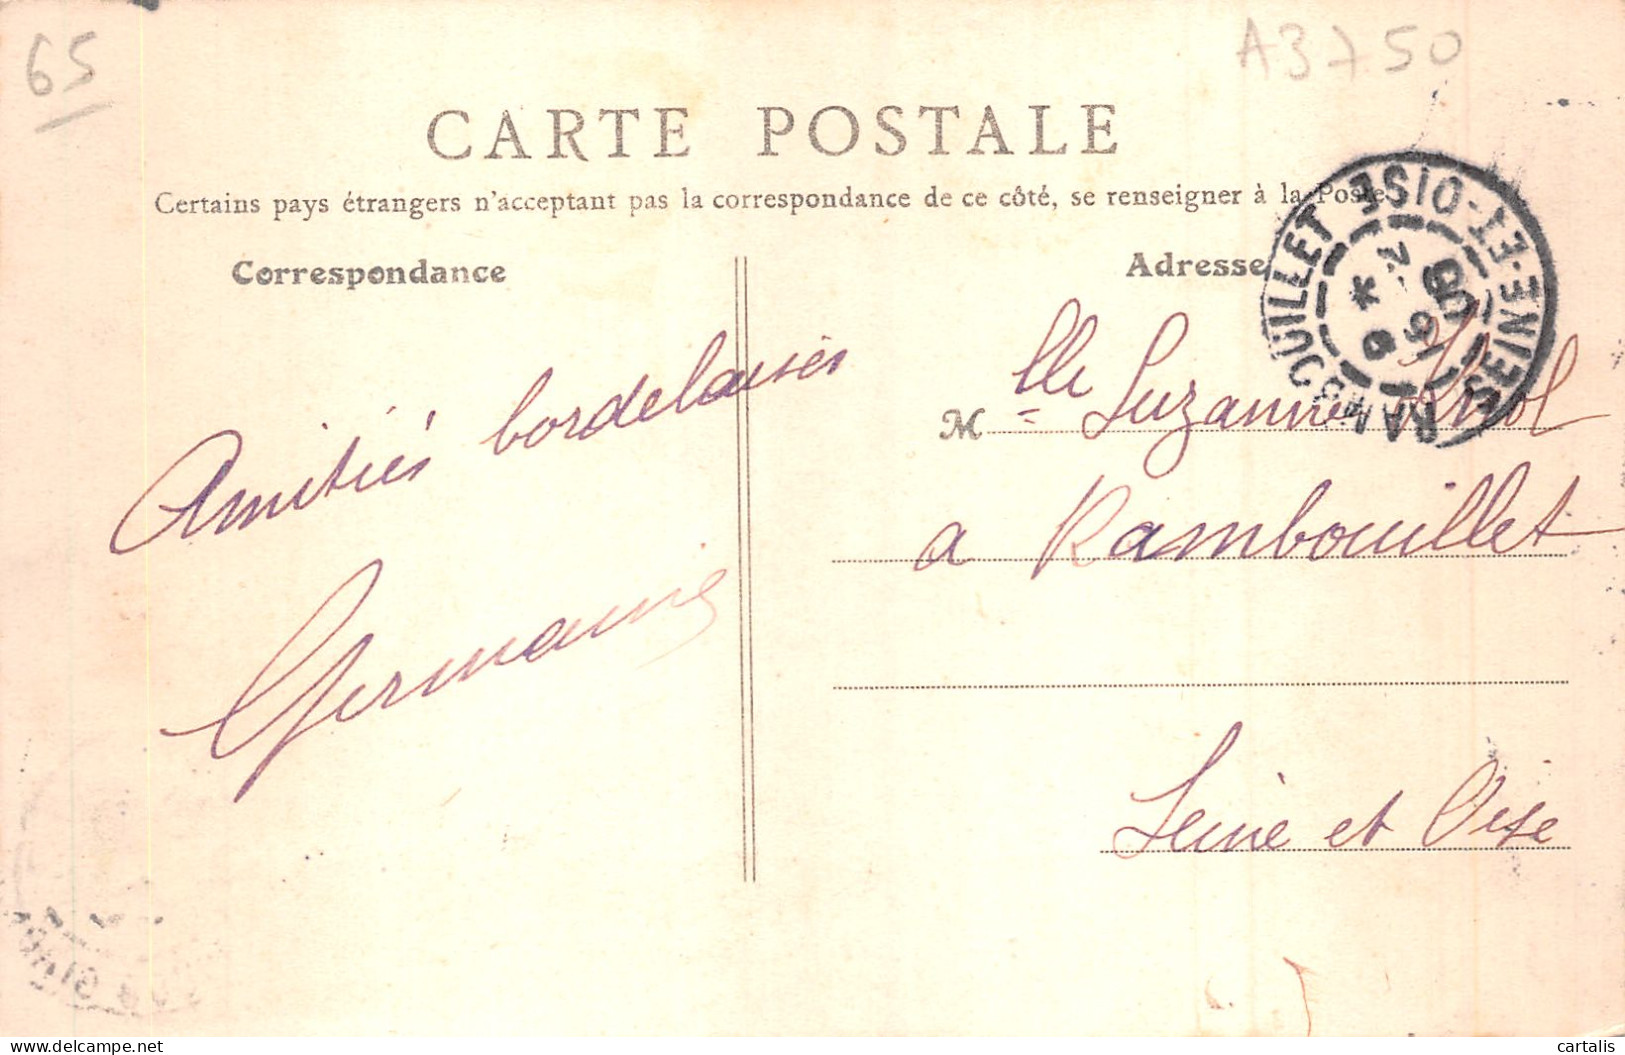 65
A3750
CARTE POSTALE
Certains pays étrangers n'acceptant pas la correspondance de ce côté, se renseigner à la Poste
Correspondance
Adresse
RAMBOUILLET SEINE-ET-OISE
Amitiés bordelaises
Germaine
M lle Suzanne
a Rambouillet
Seine et Oise
delcampe.net
cartalis